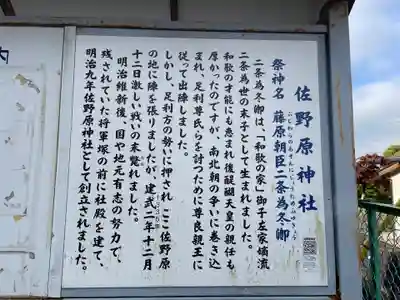 佐野原神社
祭神名 藤原朝臣二条為冬卿
二条為冬卿は、「和歌の家」御子左家嫡流
二条為世の末子として生まれました。
和歌の才能にも恵まれ後醍醐天皇の親任も
厚かったのですが、南北朝の争いに巻き込
まれ、足利尊氏らを討つために尊良親王に
従って出陣しました。
しかし、足利方の勢いに押されここ佐野原
の地に陣を張りましたが、建武二年十二月
十二日激しい戦いの末斃れました。
明治維新後、国や地元有志の努力で、
残されていた将軍塚の前に社殿を建て、
明治九年佐野原神社として創立されました。
内